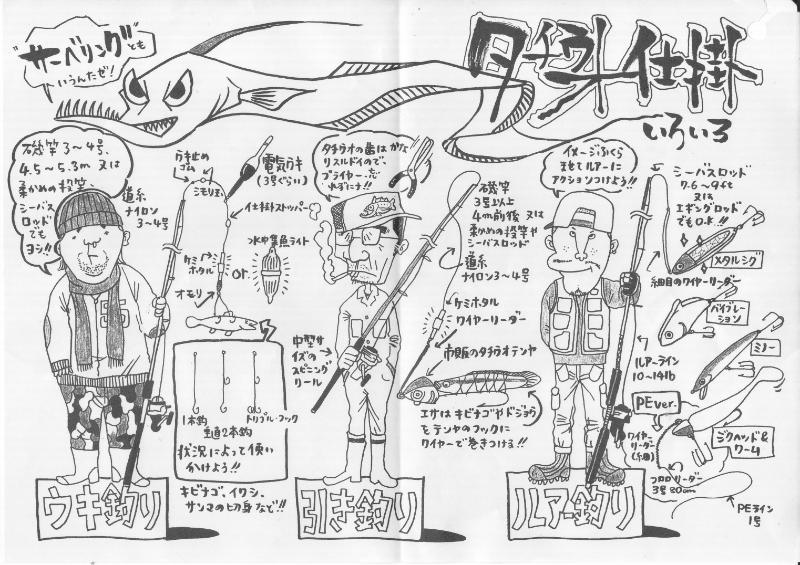 "サーベリング"とも
いうんだぜ!
タチウオ仕掛
いろいろ
磯竿3〜4号、
4.5〜5.3m又は
柔かめの投竿、
シーバス
ロッド
でも
ヨシ!!
道糸
ナイロン
3〜4号
ウキ止め
ゴム
シモリ玉
電気ウキ
(3号ぐらい)
仕掛ストッパー
水中集魚ライト
ケミ
ホタル
or
オモリ
1本針
直2本針
トリプルフック
状況によって使い
かけよう!!
キビナゴ、イワシ、
サンマの切身など!!
ウキ釣り
タチウオの歯はかな
リスルドイので、
プライヤー忘
れずニナ!!
磯竿
3号以上
4m前後又は
柔かめの投竿や
シーバスロッド
道糸
ナイロン3〜4号
ケミホタル
ワイヤーリーダー
市販のタチウオテンヤ
中型サ
イズの
スピニング
リール
エサはキビナゴやドジョウ
をテンヤのフックに
ワイヤーで巻きつける!!
引き釣り
イメージふくら
ませてルアーに
アクションつけよう!!
シーバスロッド
7.6〜9ft
又は
エギングロッド
でもO.K!!
メタルジグ
細目のワイヤーリーダー
バイブレー
ション
ミノー
ルアーライン
10〜14lb
PEver.
ワイヤー
リーダー
(細)
ジグヘッド&
ワーム
フロロリーダー
3号80cm
PEライン
1号
ルアー釣り